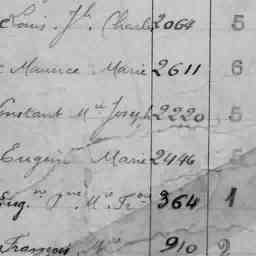 Louis Jh. Charles 2064 5
Maurice Marie 2611 6
Constant Mie Joseph 2220 5
Eugène Marie 2446 5
Eug. ne Jne. Me. Fr 364 1
François Me 910 2